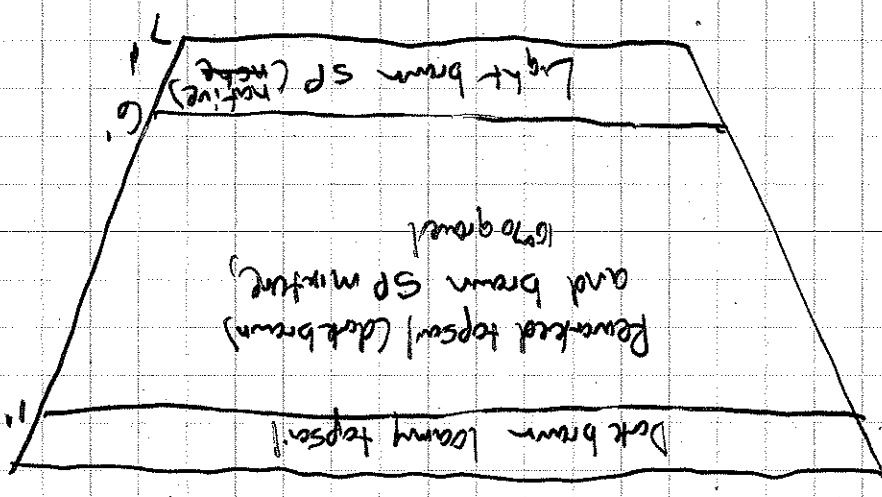 Dark brown loamy topsoil
1'
Reworked topsoil (dark brown)
and brown SP mixture,
10% gravel
6'
Light brown SP (native)
7'